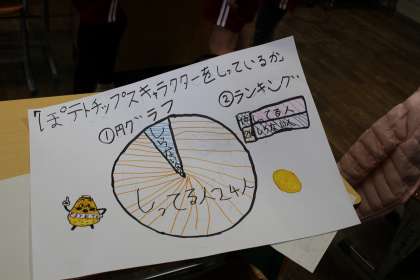 ポテトチップスキャラクターをしっているか
①円グラフ
②ランキング
1位 しってる人
2位 しらない人
しってる人24人